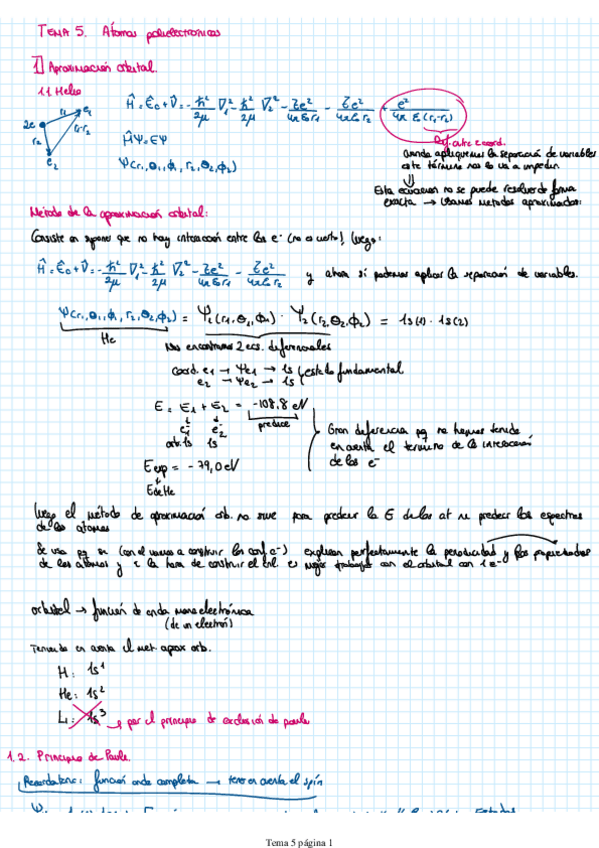 TEMA 5. Átomos polielectrónicos
1) Aproximación orbital.
1.1 Helio
r₁ e₁
2e
r₂ r₁-r₂
e₂
Ĥ = Ê₀ + V̂ = -ℏ²/2μ ∇₁² - ℏ²/2μ ∇₂² - Ze²/4πε₀r₁ - Ze²/4πε₀r₂ + e²/4πε₀(r₁-r₂)
ĤΨ = EΨ
Ψ(r₁, θ₁, ϕ₁, r₂, θ₂, ϕ₂)
entre e coord.
Cuando apliquemos la separación de variables
este término nos lo va a impedir
⇓
Esta ecuación no se puede resolver de forma
exacta → usamos metodos aproximados.
Metodo de la aproximación orbital:
Consiste en suponer que no hay interacción entre los e⁻ (no es cierto), luego:
Ĥ = Ê₀ + V̂ = -ℏ²/2μ ∇₁² - ℏ²/2μ ∇₂² - Ze²/4πε₀r₁ - Ze²/4πε₀r₂ y ahora si podemos aplicar la separación de variables.
Ψ(r₁, θ₁, ϕ₁, r₂, θ₂, ϕ₂) = Ψ₁(r₁, θ₁, ϕ₁) · Ψ₂(r₂, θ₂, ϕ₂) = 1s(1) · 1s(2)
He
Nos encontramos 2 ecs. diferenciales
Coord. e₁ → Ψe₁ → 1s } estado fundamental
e₂ → Ψe₂ → 1s
E = E₁ + E₂ = -108,8 eV
e₁⁻ e₂⁻ predice
orb. 1s 1s
Gran diferencia pq no hemos tenido
en cuenta el termino de la interacción
de los e⁻
Eexp = -79,0 eV
E de He
luego el método de aproximación orb. no sirve para predecir la E de los at ni predecir los espectros
de los átomos
Se usa pq se (con el vamos a construir las conf e⁻) explican perfectamente la periodicidad y las propiedades
de los átomos y a la hora de construir el enl. es mejor trabajar con el orbital con 1 e⁻
orbital → función de onda monoelectrónica
(de un electrón)
Teniendo en cuenta el met. aprox orb.
H: 1s¹
He: 1s²
Li: 1s³ → por el principio de exclusión de Pauli
1.2. Principio de Pauli.
Recordatorio: función onda completa → tener en cuenta el spin
Tema 5 página 1